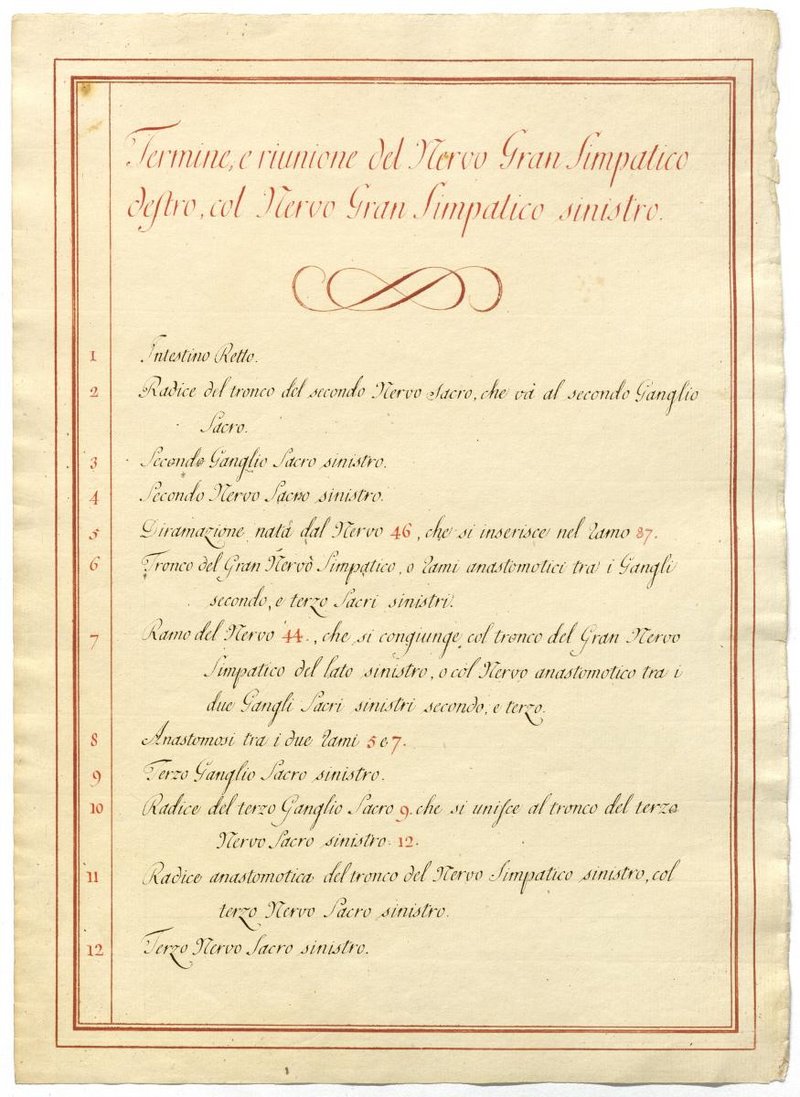 Termine, e riunione del Nervo Gran Simpatico
destro, col Nervo Gran Simpatico sinistro.
1 Intestino Retto.
2 Radice del tronco del secondo Nervo Sacro, che và al secondo Ganglio
Sacro.
3 Secondo Ganglio Sacro sinistro.
4 Secondo Nervo Sacro sinistro.
5 Diramazione nata dal Nervo 46, che si inserisce nel ramo 87.
6 Tronco del Gran Nervo Simpatico, o rami anastomotici tra i Gangli
secondo, e terzo Sacri sinistri.
7 Ramo del Nervo 44., che si congiunge col tronco del Gran Nervo
Simpatico del lato sinistro, o col Nervo anastomotico tra i
due Gangli Sacri sinistri secondo, e terzo.
8 Anastomosi tra i due rami 5 e 7.
9 Terzo Ganglio Sacro sinistro.
10 Radice del terzo Ganglio Sacro 9. che si unisce al tronco del terzo
Nervo Sacro sinistro. 12.
11 Radice anastomotica del tronco del Nervo Simpatico sinistro, col
terzo Nervo Sacro sinistro.
12 Terzo Nervo Sacro sinistro.